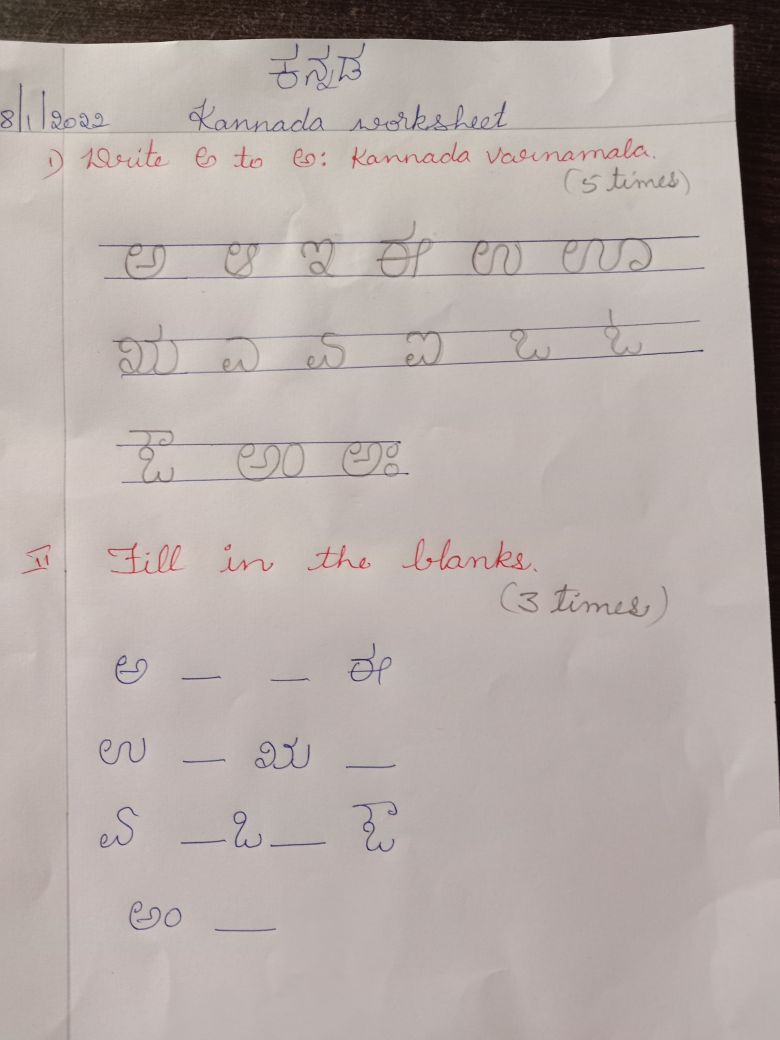 ಕನ್ನಡ
8/1/2022 Kannada worksheet
1) Write ಅ to ಅಃ Kannada varnamala.
(5 times)
ಅ ಆ ಇ ಈ ಉ ಊ
ಋ ಎ ಏ ಐ ಒ ಓ
ಔ ಅಂ ಅಃ
II Fill in the blanks.
(3 times)
ಅ _ _ ಈ
ಉ _ ಋ _
ಏ _ ಒ _ ಔ
ಅಂ _